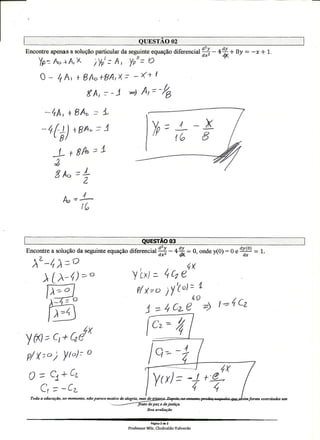 QUESTÃO 02
Encontre apenas a solução particular da seguinte equação diferencial d²y/dx² − 4 dy/dx + 8y = −x + 1.
yp = A₀ + A₁ X ; yp' = A₁ yp'' = 0
0 - 4A₁ + 8A₀ + 8A₁ X = -X + 1
8A₁ = -1 ⇒ A₁ = -1/8
-4A₁ + 8A₀ = 1
-4(-1/8) + 8A₀ = 1
1/2 + 8A₀ = 1
8A₀ = 1/2
A₀ = 1/16
yp = 1/16 - X/8
QUESTÃO 03
Encontre a solução da seguinte equação diferencial d²y/dx² − 4 dy/dx = 0, onde y(0) = 0 e dy(0)/dx = 1.
λ² - 4λ = 0
λ(λ-4) = 0
λ = 0
λ - 4 = 0
λ = 4
y(x) = C₁ + C₂e^4x
p/ x=0; y(0) = 0
0 = C₁ + C₂
C₁ = -C₂
y'(x) = 4C₂e^4x
p/ x=0 ; y'(0) = 1
1 = 4C₂e^4.0 ⇒ 1 = 4C₂
C₂ = 1/4
C₁ = -1/4
y(x) = -1/4 + e^4x/4
Toda a educação, no momento, não parece motivo de alegria, mas de tristeza. Depois, no entanto, produz naqueles que assim foram exercitados um
fruto de paz e de justiça.
Boa avaliação
Página 2 de 2
Professor MSc. Clodoaldo Valverde